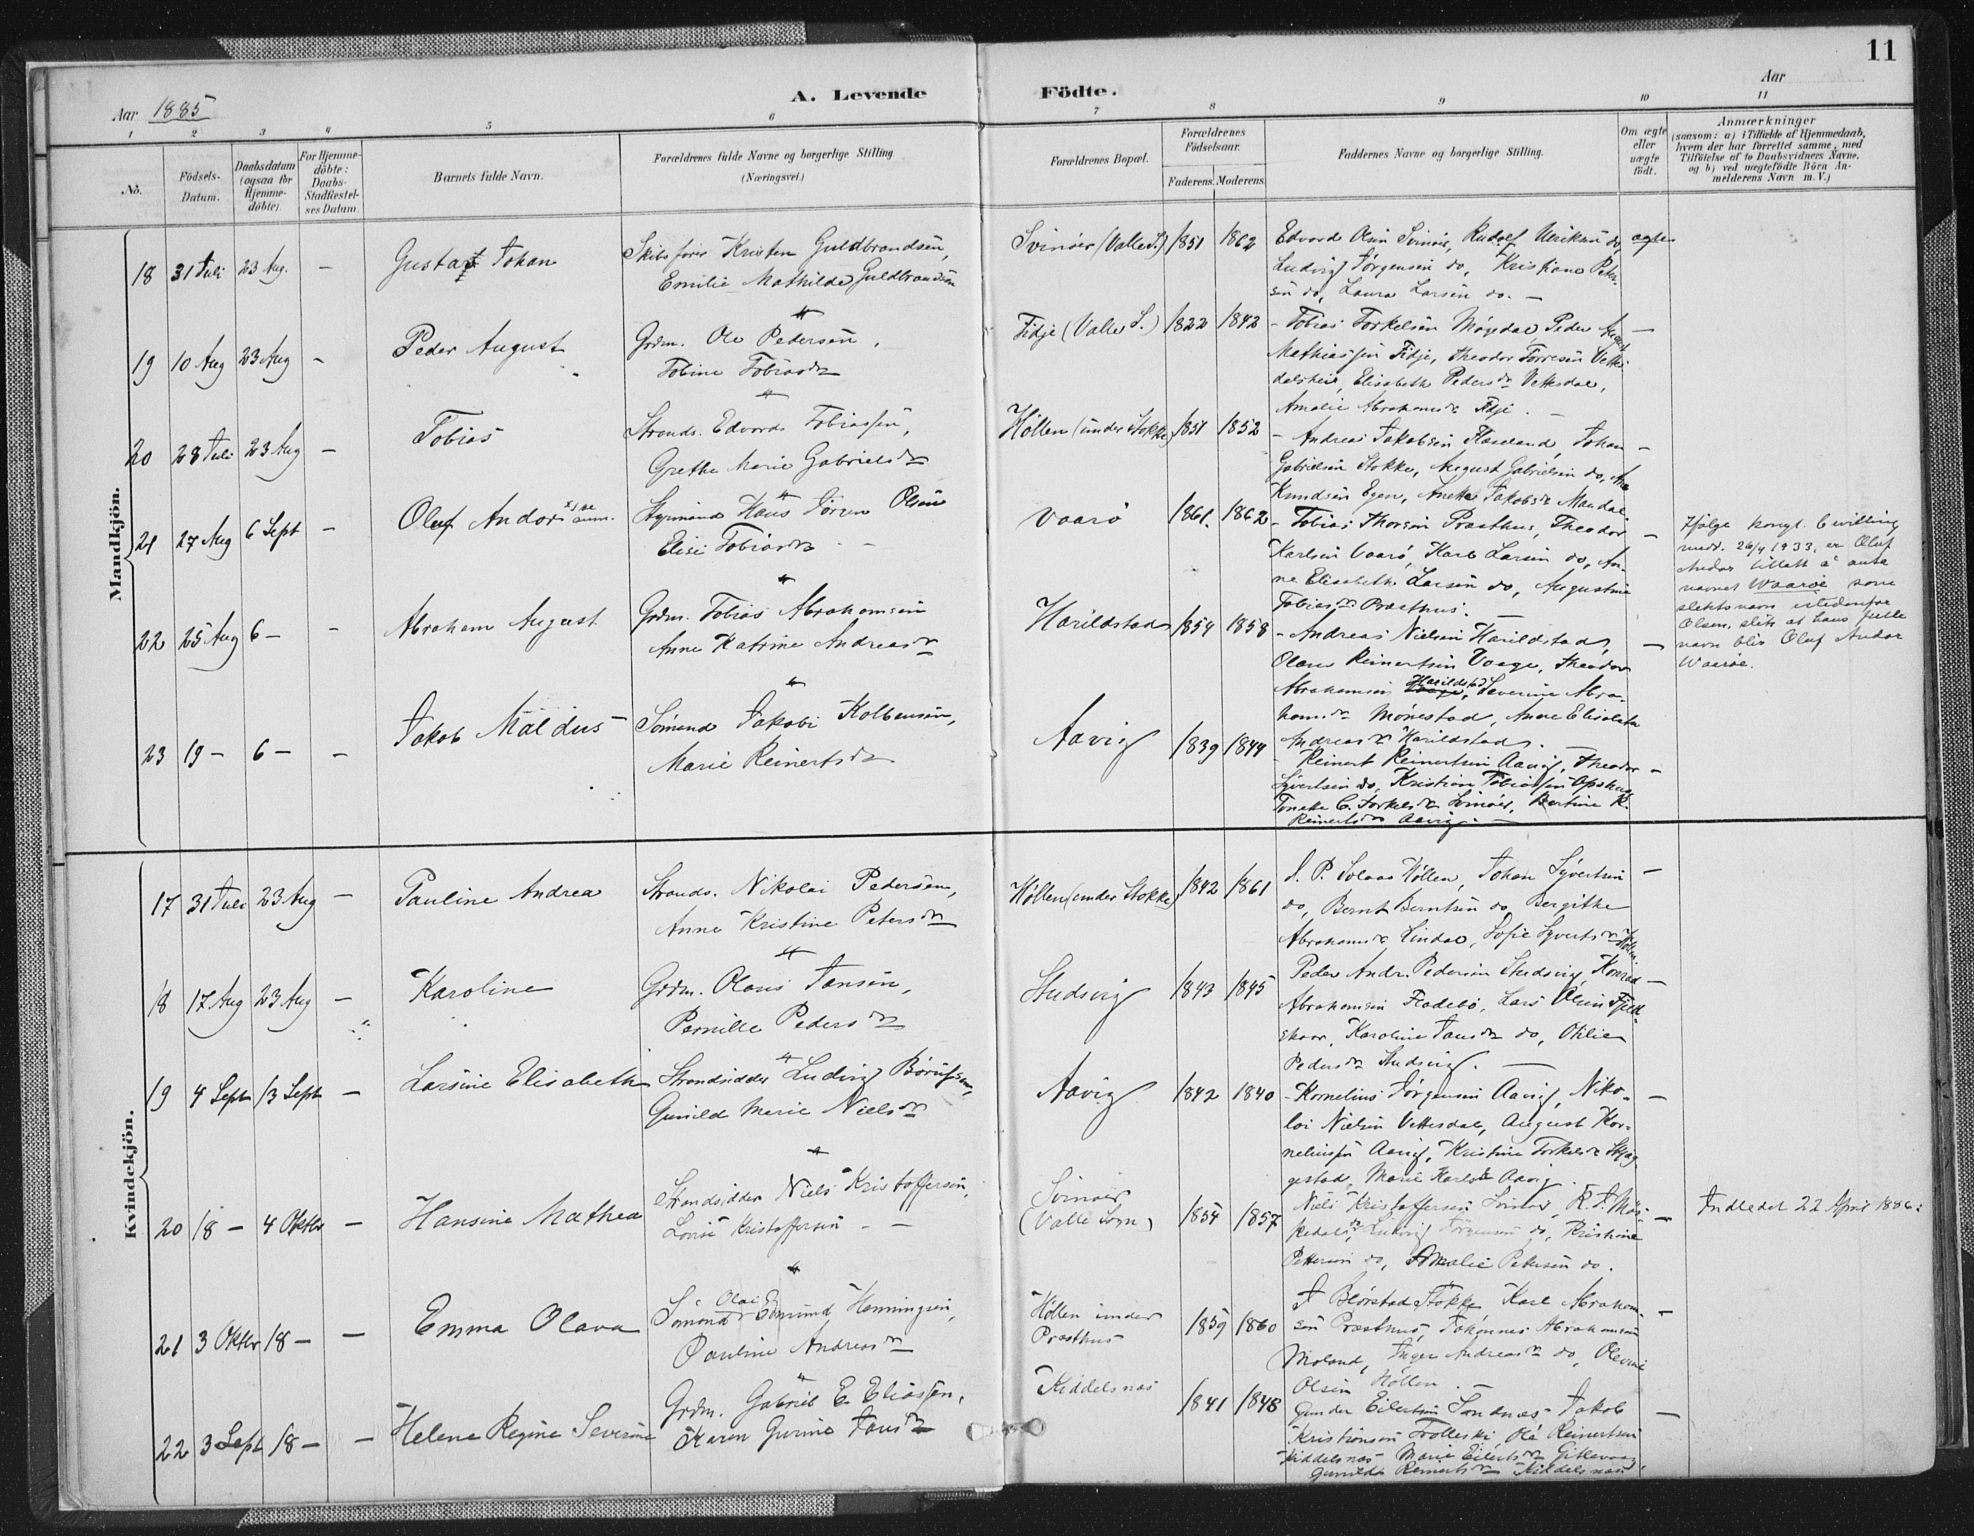 11
Aar 1885
A. Levende Födte.
Aar
1 2 3 4 5 6 7 8 9 10 11
No.
Födsels-
Datum.
Daabsdatum
(ogsaa for
Hjemme-
döbte).
For Hjemme-
döbte:
Daabs-
StadfæStel-
ses Datum.
Barnets fulde Navn.
Forældrenes fulde Navne og borgerlige Stilling
(Næringsvei.)
Forældrenes Bopæl.
Forældrenes
Födselsaar.
Faderens. Moderens.
Faddernes Navne og borgerlige Stilling.
Om ægte
eller
uægte
födt.
Anmærkninger
(saasom: a) i Tilfælde af Hjemmedaab,
hvem der har forrettet samme, med
Tilföielse af to Daabsvidners Navne,
og b) ved uægtefödte Börn An-
melderens Navn m. V.)
Mandkjön.
18 31 Juli 23 Aug. – Gustaf Johan
Skibsfører Kristen Guldbrandsen,
Emilie Mathilde Guldbrandsen
Svinøer (Valle S.) 1851 1862
Edvard Olsen Svinøer, Rudolf Ulriksen do, ægte
Ludvig Jørgensen do, Kristiane Peter-
sen do, Laura Larsen do. –
19 10 Aug 23 Aug – Peder August
Grdm. Ole Pedersen,
Tobine Tobiasdr
Fidje (Valle S.) 1822 1842
Tobias Torkelsen Møgedal, Peder August
Mathiassen Fidje, Theodor Torresen Vettes-
dalsheie, Elisabeth Pedersdr Vettesdal,
Amalie Abrahamsdr Fidje. –
20 28 Juli 23 Aug – Tobias
Strands. Edvard Tobiassen,
Grethe Marie Gabrielsdr
Høllen (under Stokke) 1851 1852
Andreas Jakobsen Haaland, Johan
Gabrielsen Stokke, August Gabrielsen do,
Knudsen Egen, Aneke Jakobsdr Mandal
21 27 Aug 6 Sept – Oluf Andor
Styrmand Hans Jörgen Olsen
Elise Tobiasdr
Vaarø 1861. 1862
Tobias Thorsen Præsthus, Theodor
Karlsen Vaarø, Karl Larsen do, An-
ne Elisabeth Larsen do, Augustine
Tobiasdr Præsthus. –
Ifølge kongl. bevilling
medd. 26/4 1933, er Oluf
Andor tillatt å anta
navnet Waarøe som
slektsnavn istedenfor
Olsen, slik at hans fulle
navn blir Oluf Andor
Waarøe.
22 25 Aug 6 – – Abraham August
Grdm. Tobias Abrahamsen
Anne Katrine Andreasdr
Harildstad 1854 1858
Andreas Nielsen Harildstad,
Olaus Reinertsen Vaage, Theodor
Abrahamsen Harildstad, Severine Abra-
hamsdr Mønestad, Anne Elisabeth
Andreasdr Harildstad. –
23 19 – 6 – – Jakob Maldus
Sømand Jakob Kolbensen,
Marie Reinertsdr
Aavig 1839 1844
Reinert Reinertsen Aavig, Theodor
Syvertsen do, Kristian Tobiassen Opshus,
Toneke C. Torkelsdr Svinøer, Bertine R.
Reinertsdr Aavig. –
Kvindekjön.
17 31 Juli 23 Aug – Pauline Andrea
Strands. Nikolai Pedersen,
Anne Kristine Petersdr
Høllen (under Stokke) 1842 1861
S. P. Solaas Høllen, Johan Syvertsen
do, Bernt Berntsen do, Bergithe
Abrahamsdr Lindal, Sofie Syvertsdr Høllen
18 17 Aug 23 Aug – Karoline
Grdm. Olaus Jansen,
Pernille Pedersdr
Studsvig 1843 1845
Peder Andr. Pedersen Studsvig, Konrad
Abrahamsen Fladebø, Lars Olsen Fjeld-
skaar, Karoline Jansdr do, Otilie
Pedersdr Studsvig. –
19 4 Sept 13 Sept – Larsine Elisabeth
Strandsidder Ludvig Børufsen,
Gunild Marie Nielsdr
Aavig 1842 1840
Kornelius Jørgensen Aavig, Niko-
lai Nielsen Vettesdal, August Kor-
neliussen Aavig, Kristine Torkelsdr Skjæg-
gestad, Marie Karlsdr Aavig.
20 18 – 4 Oktbr – Hansine Mathea
Strandsidder Niels Kristoffersen,
Lovise Kristoffersen
Svinøer
(Valle Sogn) 1854 1857
Niels Kristoffersen Svinøer, K. J. Møs-
kedal, Ludvig Jørgensen do, Kristine
Pettersen do, Amalie Petersen do.
Indledet 22 April 1886.
21 3 Oktbr 18 – – Emma Olava
Sømand Olai Edmund Henningsen,
Pauline Andreasdr
Høllen under
Præsthus 1859 1860
J Blørstad Stokke, Karl Abraham-
sen Præsthus, Johannes Abrahamsen
Moland, Inger Andreasdr do, Olevine
Olsen Høllen. –
22 3 Sept 18 – – Helene Regine Severine
Grdm. Gabriel E. Eliassen,
Karen Gurine Jansdr
Kiddelsnæs 1841 1848
Gunder Eilertsen Sandnæs, Jakob
Kristiansen Trolleski, Ole Reinertsen
Kiddelsnæs, Marie Eilertsdr Gitlevaag,
Gunilde Reinertsdr Kiddelsnæs